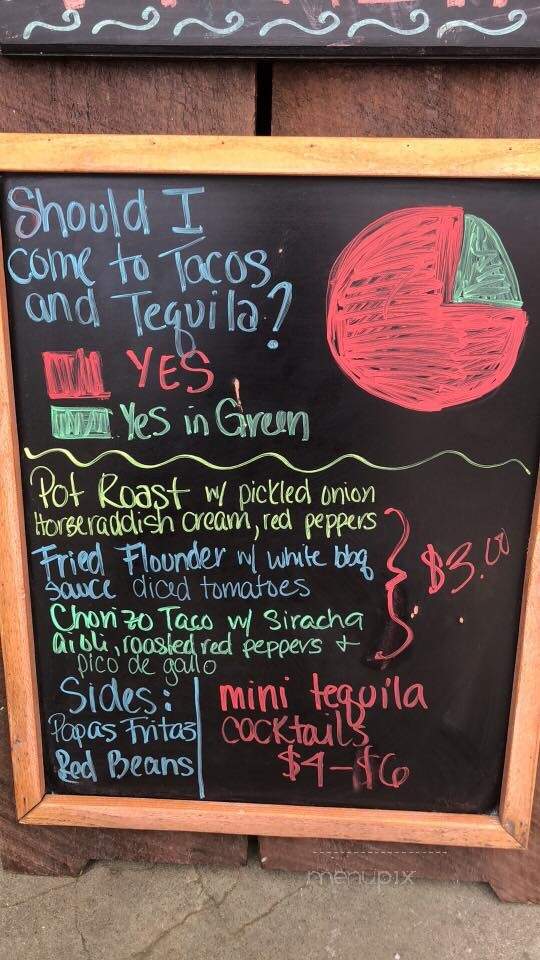 Should I
come to Tacos
and Tequila?
YES
Yes in Green
Pot Roast w/ pickled onion
Horseraddish cream, red peppers
Fried Flounder w/ white bbq
sauce diced tomatoes
$3.00
Chorizo Taco w/ Siracha
aioli, roasted red peppers +
pico de gallo
Sides:
Papas Fritas
Red Beans
mini tequila
cocktails
$4-$6
menupix